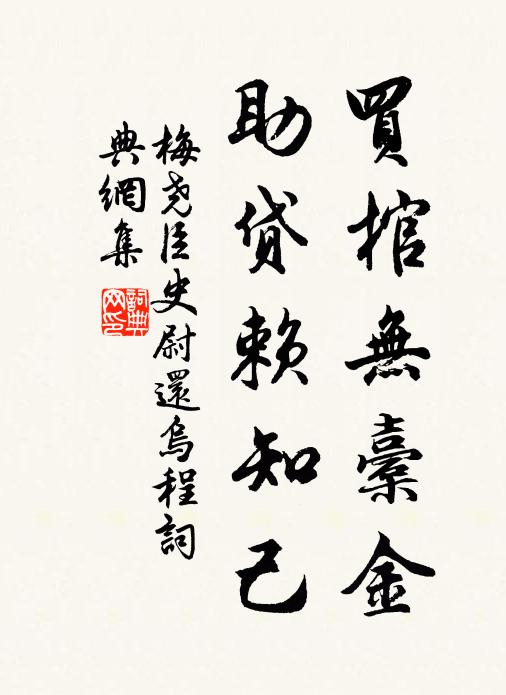 買棺無橐金
助貸賴知己
梅堯臣史尉還烏程詞
典網集
詞典網印